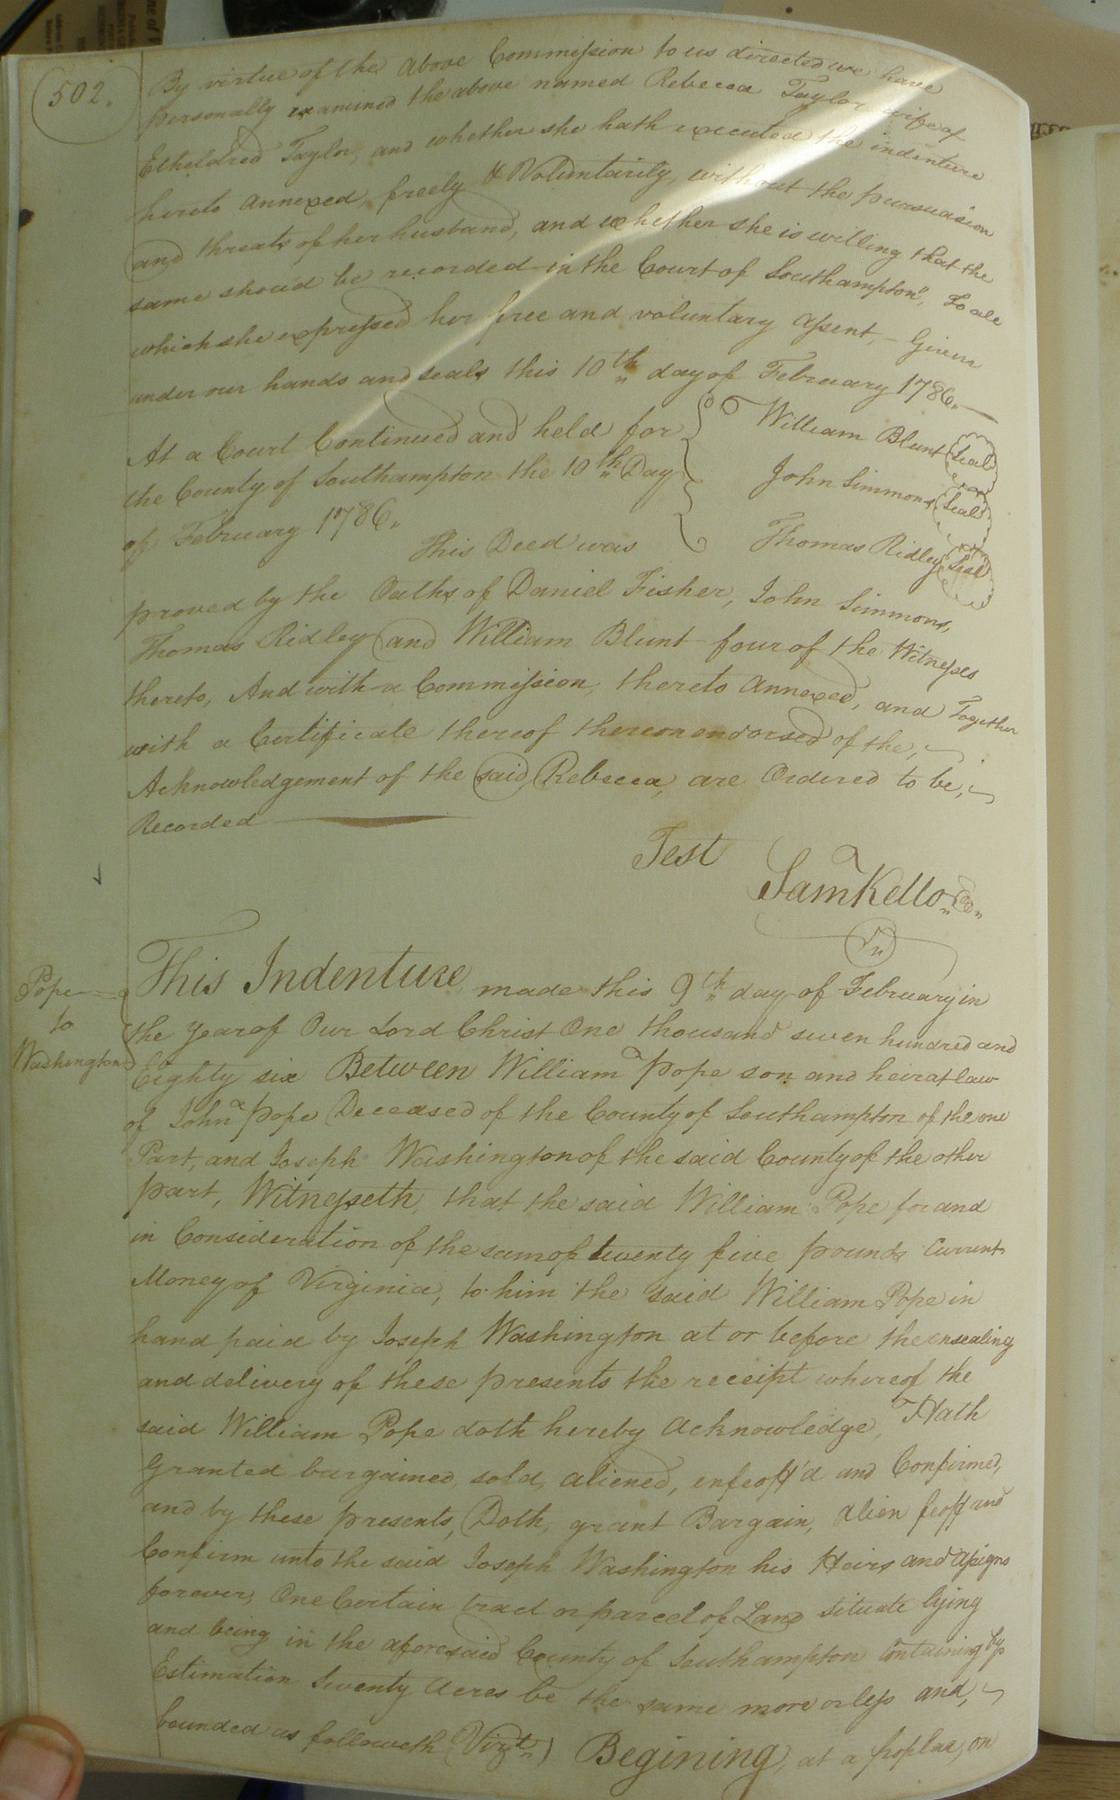 502.
By virtue of the above Commission to us directed we have
personally examined the above named Rebecca Taylor wife of
Etheldred Taylor, and whether she hath executed the indenture
hereto annexed freely & Voluntarily, without the pursuasion
and threats of her husband, and whether she is willing that the
same should be recorded in the Court of Southampton, To all
which she expressed her free and voluntary assent, - Given
under our hands and seals this 10th day of February 1786. —
At a Court Continued and held for
the County of Southampton the 10th Day
of February 1786.
William Blunt Seal
John Simmons, Seal
Thomas Ridley Seal
This Deed was
proved by the Oaths of Daniel Fisher, John Simmons,
Thomas Ridley and William Blunt four of the Witnesses
thereto, And with a Commission, thereto annexed, and Together
with a Certificate thereof thereon endorsed of the,
Acknowledgement of the said Rebecca, are Ordered to be,
Recorded
Test
Sam Kello
Pope
to
Washington
This Indenture made this 9th day of February in
the year of Our Lord Christ One thousand seven hundred and
Eighty six Between William Pope son and heir at law
of John Pope Deceased of the County of Southampton of the one
Part, and Joseph Washington of the said County of the other
part, Witnesseth, that the said William Pope for and
in Consideration of the sum of twenty five pounds Current
Money of Virginia, to him the said William Pope in
hand paid by Joseph Washington at or before the ensealing
and delivery of these presents the receipt whereof the
said William Pope doth hereby acknowledge, Hath
Granted bargained, sold, aliened, enfeoff'd and Confirmed,
and by these presents, Doth, grant Bargain, Alien feoff and
Confirm unto the said Joseph Washington his Heirs and Assigns
forever, One Certain tract or parcel of Land situate lying
and being in the aforesaid County of Southampton Containing by
Estimation Seventy Acres be the same more or less and,
bounded as followeth (Vizt.) Begining, at a poplar, on